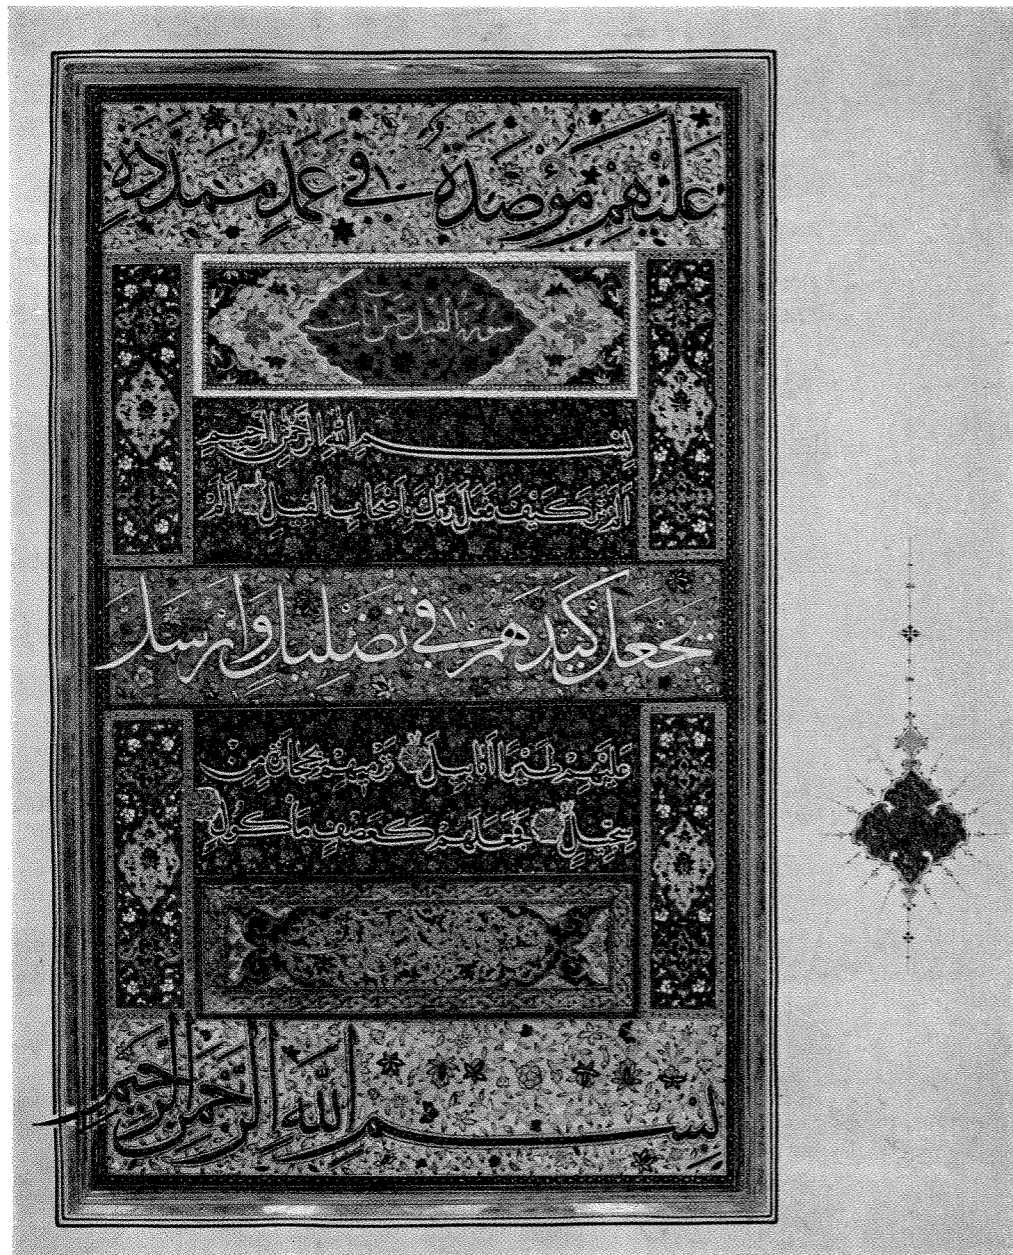 عَلَيْهِمْ مُؤْصَدَةٌ فِي عَمَدٍ مُمَدَّدَةٍ
سورة الفيل خمس آيات
بِسْمِ اللهِ الرَّحْمٰنِ الرَّحِيمِ
أَلَمْ تَرَ كَيْفَ فَعَلَ رَبُّكَ بِأَصْحَابِ الْفِيلِ أَلَمْ
يَجْعَلْ كَيْدَهُمْ فِي تَضْلِيلٍ وَأَرْسَلَ
عَلَيْهِمْ طَيْرًا أَبَابِيلَ تَرْمِيهِمْ بِحِجَارَةٍ مِنْ
سِجِّيلٍ فَجَعَلَهُمْ كَعَصْفٍ مَأْكُولٍ
بِسْمِ اللهِ الرَّحْمٰنِ الرَّحِيمِ